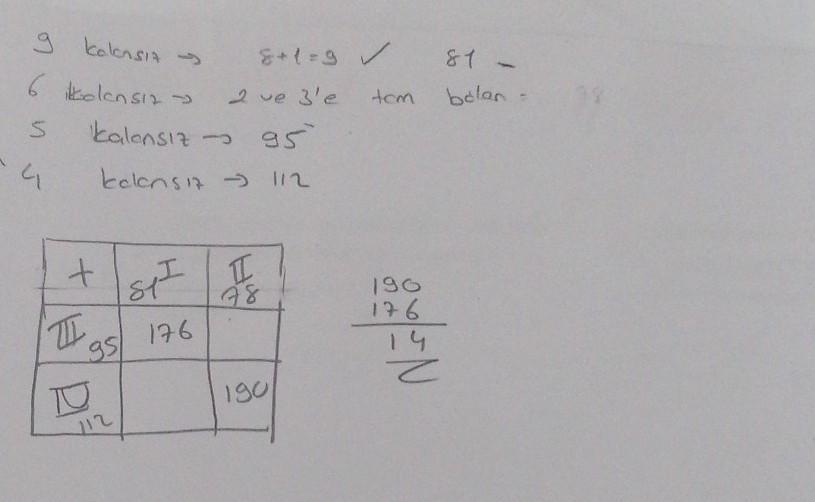 9 kalansız → 8+1=9 ✓ 81 -
6 kalansız → 2 ve 3'e tam bölün = 78
5 kalansız → 95
4 kalansız → 112
+ 81 I II 78
III 95 176
IV 112 190
190
176
14